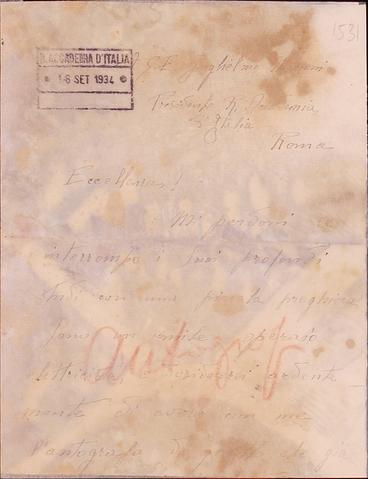 1531
R. ACCADEMIA D'ITALIA
16 SET 1934
S. E. Guglielmo Marconi
Presidente R. Accademia
d'Italia
Roma
Eccellenza!
Mi perdoni se
interrompo i Suoi profondi
studi con una piccola preghiera
Sono un umile operaio
elettricista e desidererei ardente
mente di avere con me
l'autografo di
Autografo